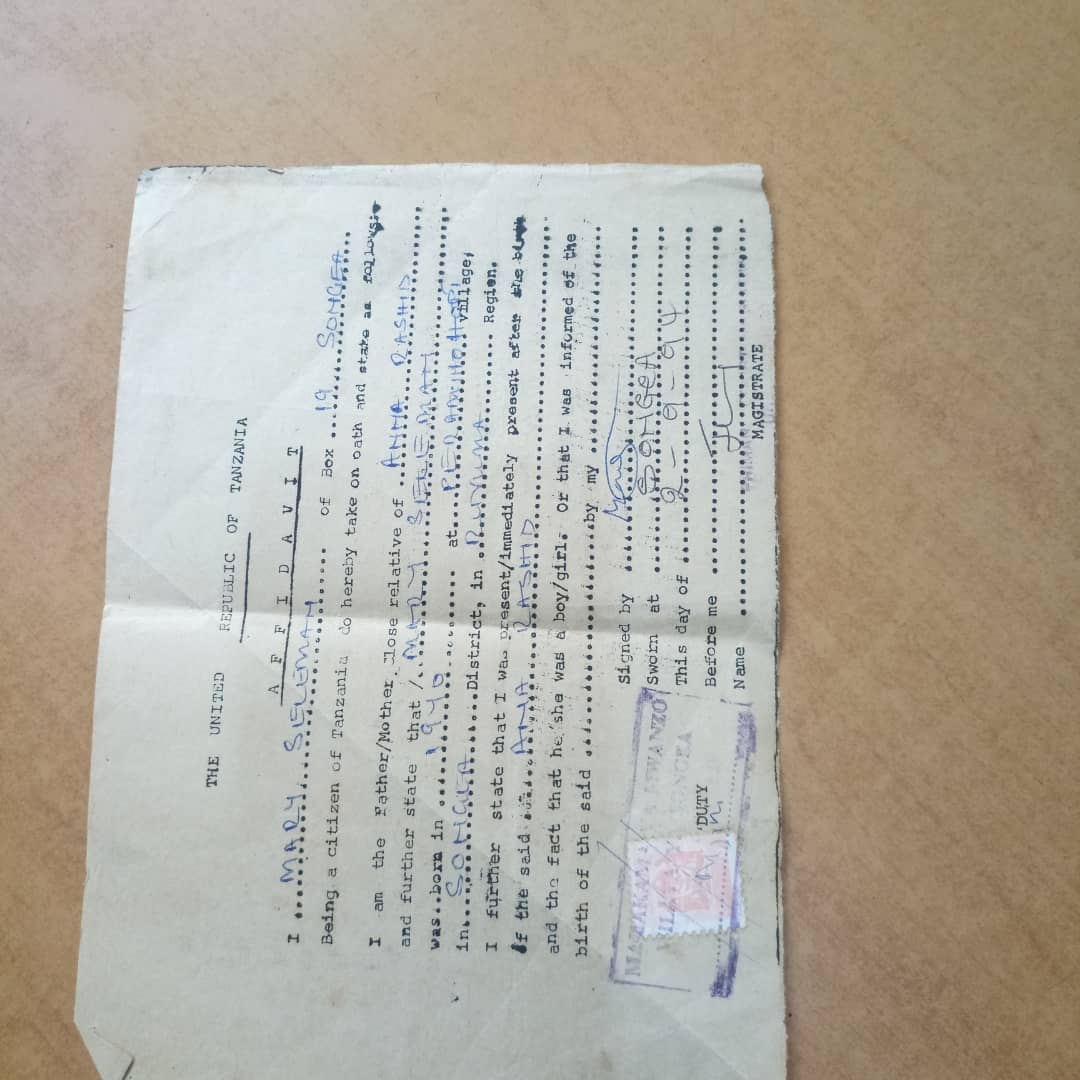 THE UNITED REPUBLIC OF TANZANIA
A F F I D A V I T
I ....MARY SELEMAN..... of Box ...19 SONGEA...
Being a citizen of Tanzania do hereby take on oath and state as follows:-
I am the Father/Mother Close relative of ...ANNA RASHID...
and further state that /..MARY SELEMAN...
was..born in ....1940.......... at...PERAMIHO...village,
in...SONGEA....District, in .RUVUMA........ Region.
I further state that I was present/immediately present after the
of the said ....ANNA RASHID...
and the fact that he/she was a boy/girl. Or that I was informed of the
birth of the said ....................by my ....................
Signed by ....
Sworn at ....SONGEA....
This day of ....2-9-94....
Before me ....................
Name ....................
MAGISTRATE
MAHAKAMA YA MWANZO
SONGEA
DUTY